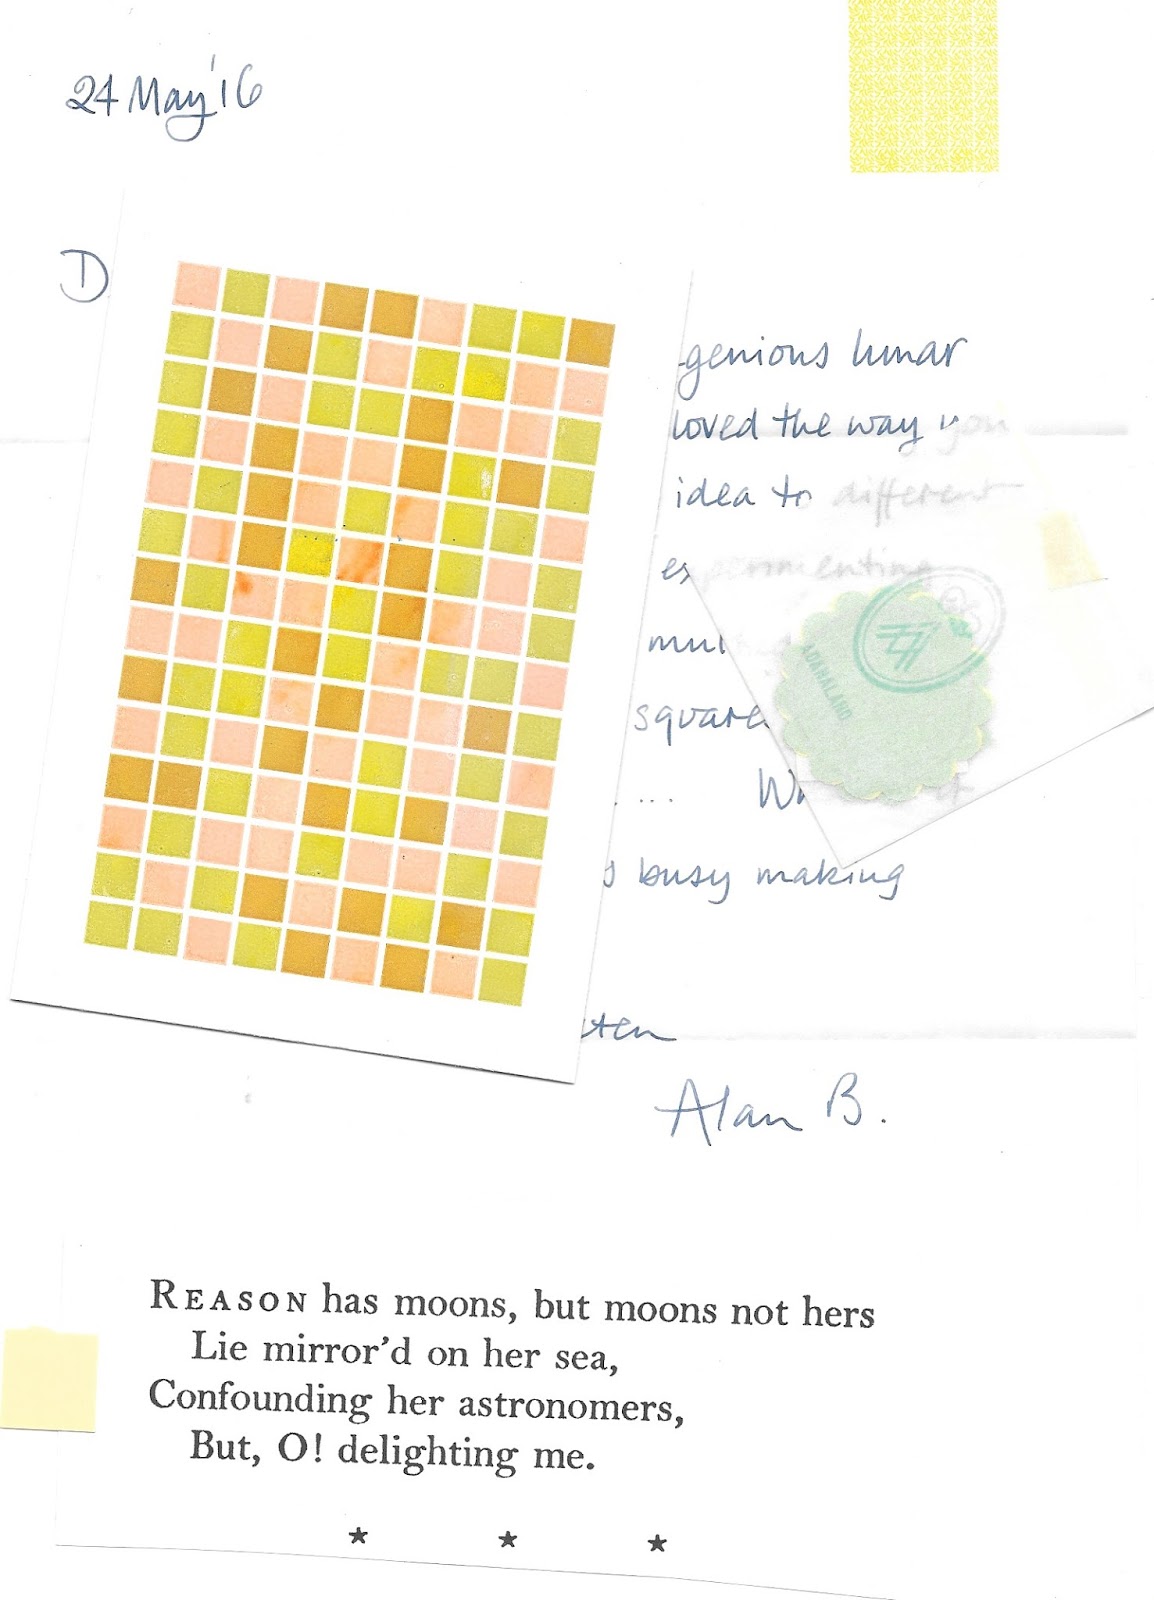 24 May '16
D
genious lunar
loved the way you
idea to different
experimenting
mul
square
...
busy making
Alan B.
ADANALAND
REASON has moons, but moons not hers
Lie mirror'd on her sea,
Confounding her astronomers,
But, O! delighting me.